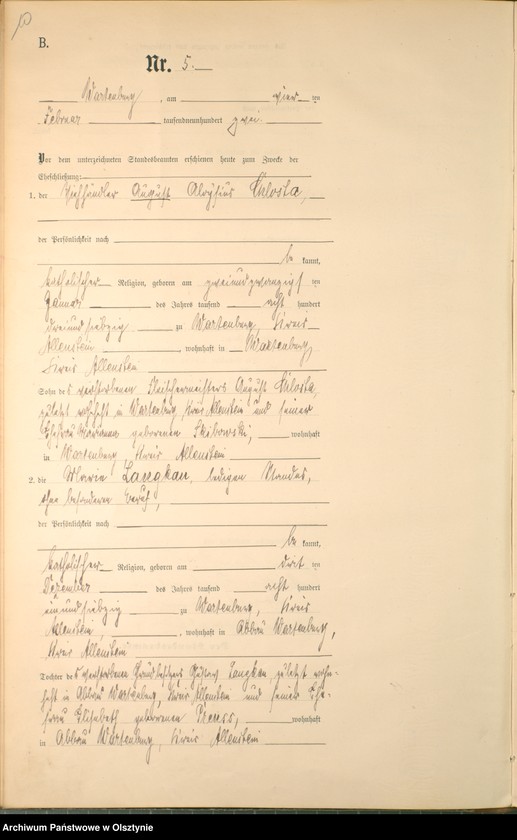 B.
Nr. 5.
Wartenburg, am vier ten
Februar tausendneunhundert zwei.
Vor dem unterzeichneten Standesbeamten erschienen heute zum Zwecke der
Eheschließung:
1. der Viehhändler August Aloysius Chlosta,
der Persönlichkeit nach
be kannt,
katholischer Religion, geboren am zweiundzwanzigs ten
Januar des Jahrs tausend acht hundert
dreiundsiebzig zu Wartenburg, Kreis
Allenstein, wohnhaft in Wartenburg,
Kreis Allenstein
Sohn des verstorbenen Fleischermeisters August Chlosta,
zuletzt wohnhaft in Wartenburg, Kreis Allenstein und seiner
Ehefrau Marianna geborenen Skibowski, wohnhaft
in Wartenburg, Kreis Allenstein
2. die Maria Langkau, ledigen Standes,
ohne besonderen Beruf,
der Persönlichkeit nach
be kannt,
katholischer Religion, geboren am drit ten
Dezember des Jahrs tausend acht hundert
einundsiebzig zu Wartenburg, Kreis
Allenstein, wohnhaft in Abbau Wartenburg,
Kreis Allenstein
Tochter des verstorbenen Grundbesitzers Gustav Langkau zuletzt wohn-
haft in Abbau Wartenburg, Kreis Allenstein und seiner Ehe-
frau Elisabeth geborenen Preuss, wohnhaft
in Abbau Wartenburg, Kreis Allenstein
Archiwum Państwowe w Olsztynie